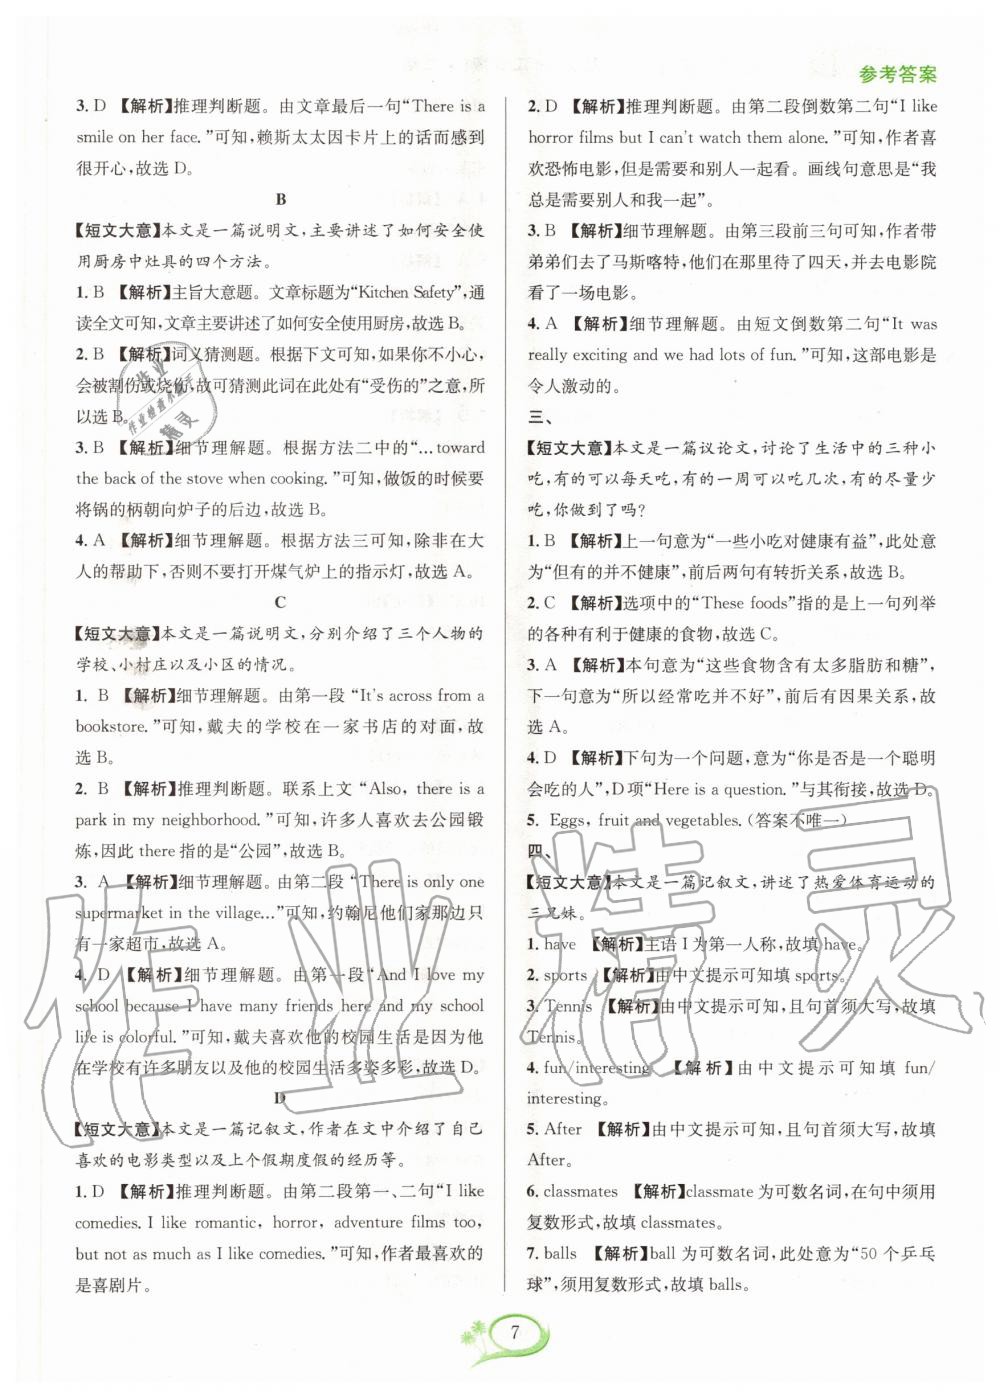 参考答案
3. D 【解析】推理判断题。由文章最后一句“There is a
smile on her face.”可知,赖斯太太因卡片上的话而感到
很开心,故选 D。
B
【短文大意】本文是一篇说明文,主要讲述了如何安全使
用厨房中灶具的四个方法。
1. B 【解析】主旨大意题。文章标题为“Kitchen Safety”,通
读全文可知,文章主要讲述了如何安全使用厨房,故选 B。
2. B 【解析】词义猜测题。根据下文可知,如果你不小心,
会被割伤或烧伤,故可猜测此词在此处有“受伤的”之意,所
以选 B。
3. B 【解析】细节理解题。根据方法二中的“…toward
the back of the stove when cooking.”可知,做饭的时候要
将锅的柄朝向炉子的后边,故选 B。
4. A 【解析】细节理解题。根据方法三可知,除非在大
人的帮助下,否则不要打开煤气炉上的指示灯,故选 A。
C
【短文大意】本文是一篇说明文,分别介绍了三个人物的
学校、小村庄以及小区的情况。
1. B 【解析】细节理解题。由第一段“It's across from a
bookstore.”可知,戴夫的学校在一家书店的对面,故
选 B。
2. B 【解析】推理判断题。联系上文“Also, there is a
park in my neighborhood.”可知,许多人喜欢去公园锻
炼,因此 there 指的是“公园”,故选 B。
3. A 【解析】细节理解题。由第二段“There is only one
supermarket in the village...”可知,约翰尼他们家那边只
有一家超市,故选 A。
4. D 【解析】细节理解题。由第一段“And I love my
school because I have many friends here and my school
life is colorful.”可知,戴夫喜欢他的校园生活是因为他
在学校有许多朋友以及他的校园生活多姿多彩,故选 D。
D
【短文大意】本文是一篇记叙文,作者在文中介绍了自己
喜欢的电影类型以及上个假期度假的经历等。
1. D 【解析】推理判断题。由第二段第一、二句“I like
comedies. I like romantic, horror, adventure films too,
but not as much as I like comedies.”可知,作者最喜欢的
是喜剧片。
2. D 【解析】推理判断题。由第二段倒数第二句“I like
horror films but I can't watch them alone.”可知,作者喜
欢恐怖电影,但是需要和别人一起看。画线句意思是“我
总是需要别人和我一起”。
3. B 【解析】细节理解题。由第三段前三句可知,作者带
弟弟们去了马斯喀特,他们在那里待了四天,并去电影院
看了一场电影。
4. A 【解析】细节理解题。由短文倒数第二句“It was
really exciting and we had lots of fun.”可知,这部电影是
令人激动的。
三、
【短文大意】本文是一篇议论文,讨论了生活中的三种小
吃,有的可以每天吃,有的一周可以吃几次,有的尽量少
吃,你做到了吗?
1. B 【解析】上一句意为“一些小吃对健康有益”,此处意
为“但有的并不健康”,前后两句有转折关系,故选 B。
2. C 【解析】选项中的“These foods”指的是上一句列举
的各种有利于健康的食物,故选 C。
3. A 【解析】本句意为“这些食物含有太多脂肪和糖”,
下一句意为“所以经常吃并不好”,前后有因果关系,故
选 A。
4. D 【解析】下句为一个问题,意为“你是否是一个聪明
会吃的人”,D项“Here is a question.”与其衔接,故选 D。
5. Eggs, fruit and vegetables.(答案不唯一)
四、
【短文大意】本文是一篇记叙文,讲述了热爱体育运动的
三兄妹。
1. have 【解析】主语 I 为第一人称,故填 have。
2. sports 【解析】由中文提示可知填 sports。
3. Tennis 【解析】由中文提示可知,且句首须大写,故填
Tennis。
4. fun/interesting 【解析】由中文提示可知填 fun/
interesting。
5. After 【解析】由中文提示可知,且句首须大写,故填
After。
6. classmates 【解析】classmate 为可数名词,在句中须用
复数形式,故填 classmates。
7. balls 【解析】ball 为可数名词,此处意为“50 个乒乓
球”,须用复数形式,故填 balls。
7
作业精灵